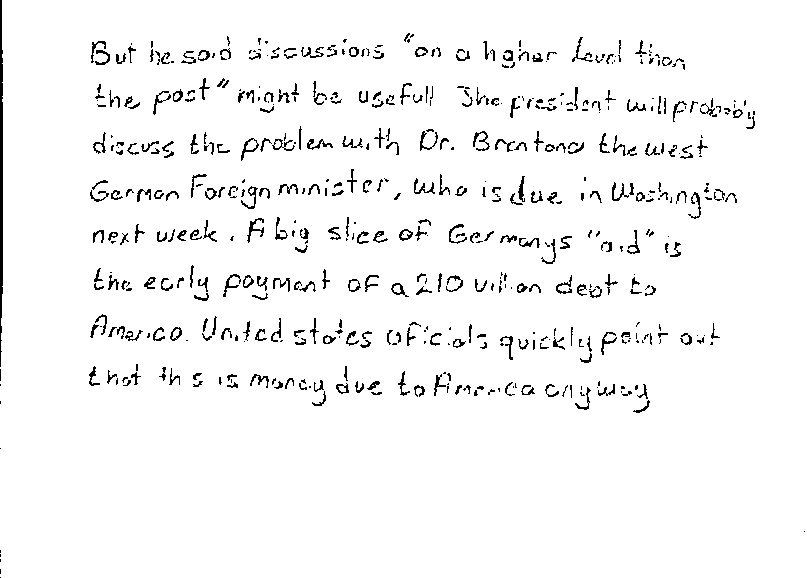 But he said discussions "on a higher level than
the past" might be usefull The president will probably
discuss the problem with Dr. Brentano the west
German Foreign minister, who is due in Washington
next week. A big slice of Germanys "aid" is
the early payment of a 210 villion debt to
America. United states oficials quickly point out
that this is money due to America anyway